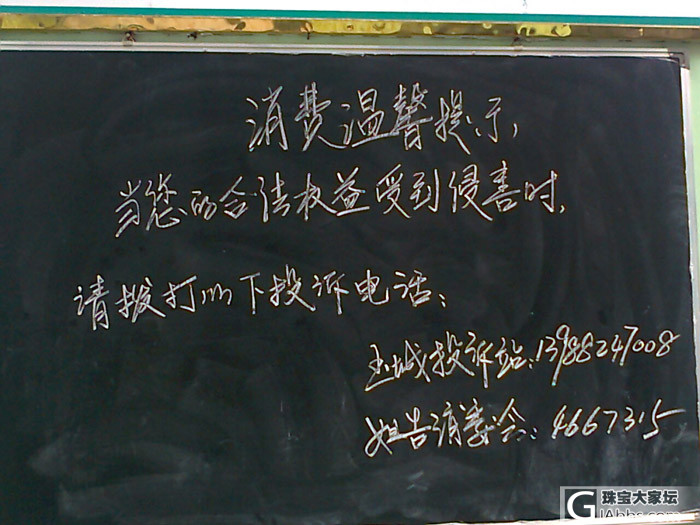 消费温馨提示,
当您的合法权益受到侵害时,
请拨打以下投诉电话:
玉城投诉站:13988247008
姐告消委会:4667315
珠宝大家坛
GIAbbs.com